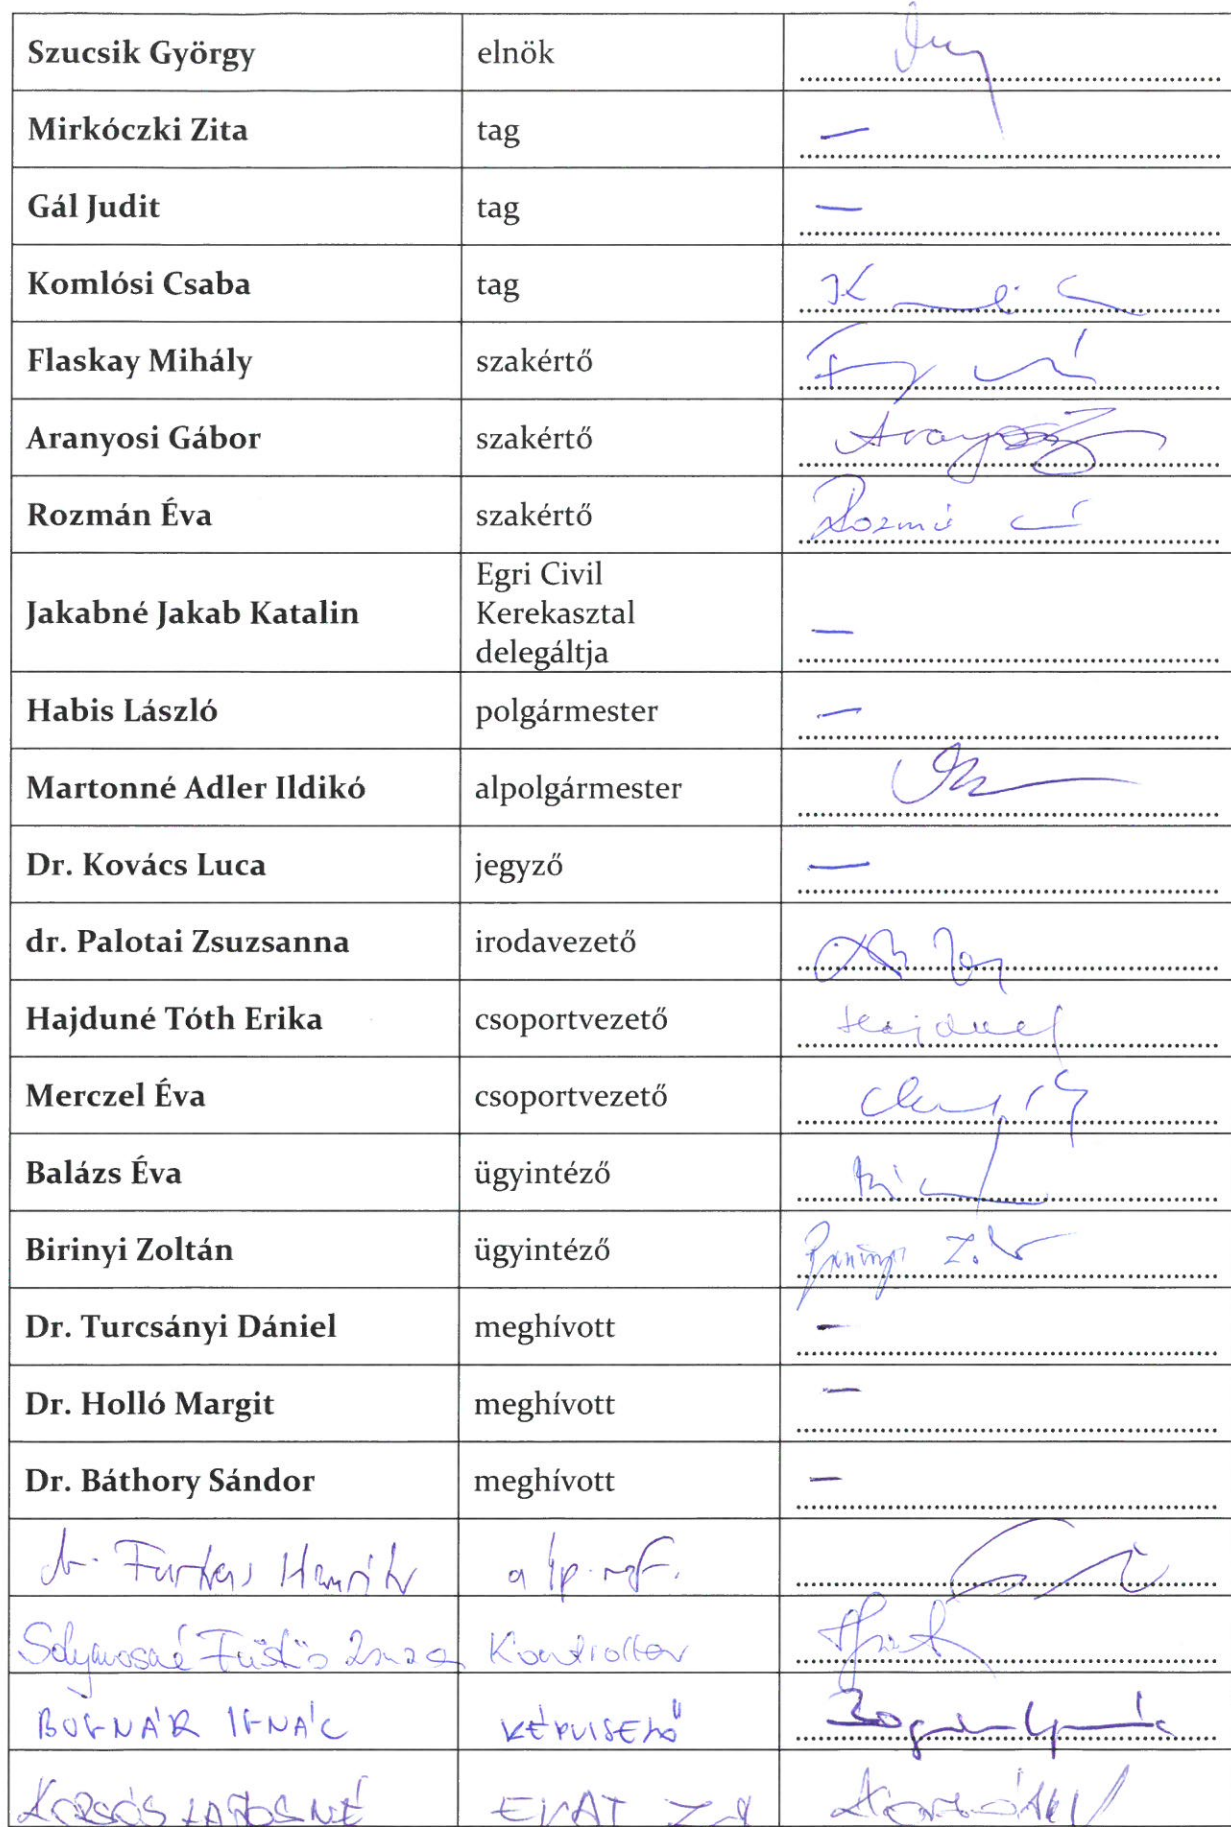 Szucsik György elnök
Mirkóczki Zita tag —
Gál Judit tag —
Komlósi Csaba tag
Flaskay Mihály szakértő
Aranyosi Gábor szakértő
Rozmán Éva szakértő
Jakabné Jakab Katalin
Egri Civil
Kerekasztal
delegáltja —
Habis László polgármester —
Martonné Adler Ildikó alpolgármester
Dr. Kovács Luca jegyző —
dr. Palotai Zsuzsanna irodavezető
Hajduné Tóth Erika csoportvezető
Merczel Éva csoportvezető
Balázs Éva ügyintéző
Birinyi Zoltán ügyintéző
Dr. Turcsányi Dániel meghívott —
Dr. Holló Margit meghívott —
Dr. Báthory Sándor meghívott —
dr. Farkas Henrik
Solymosné Füstös Kontroller
BOGNÁR IGNÁC KÉPVISELŐ
KORSÓS LAJOSNÉ EVAT